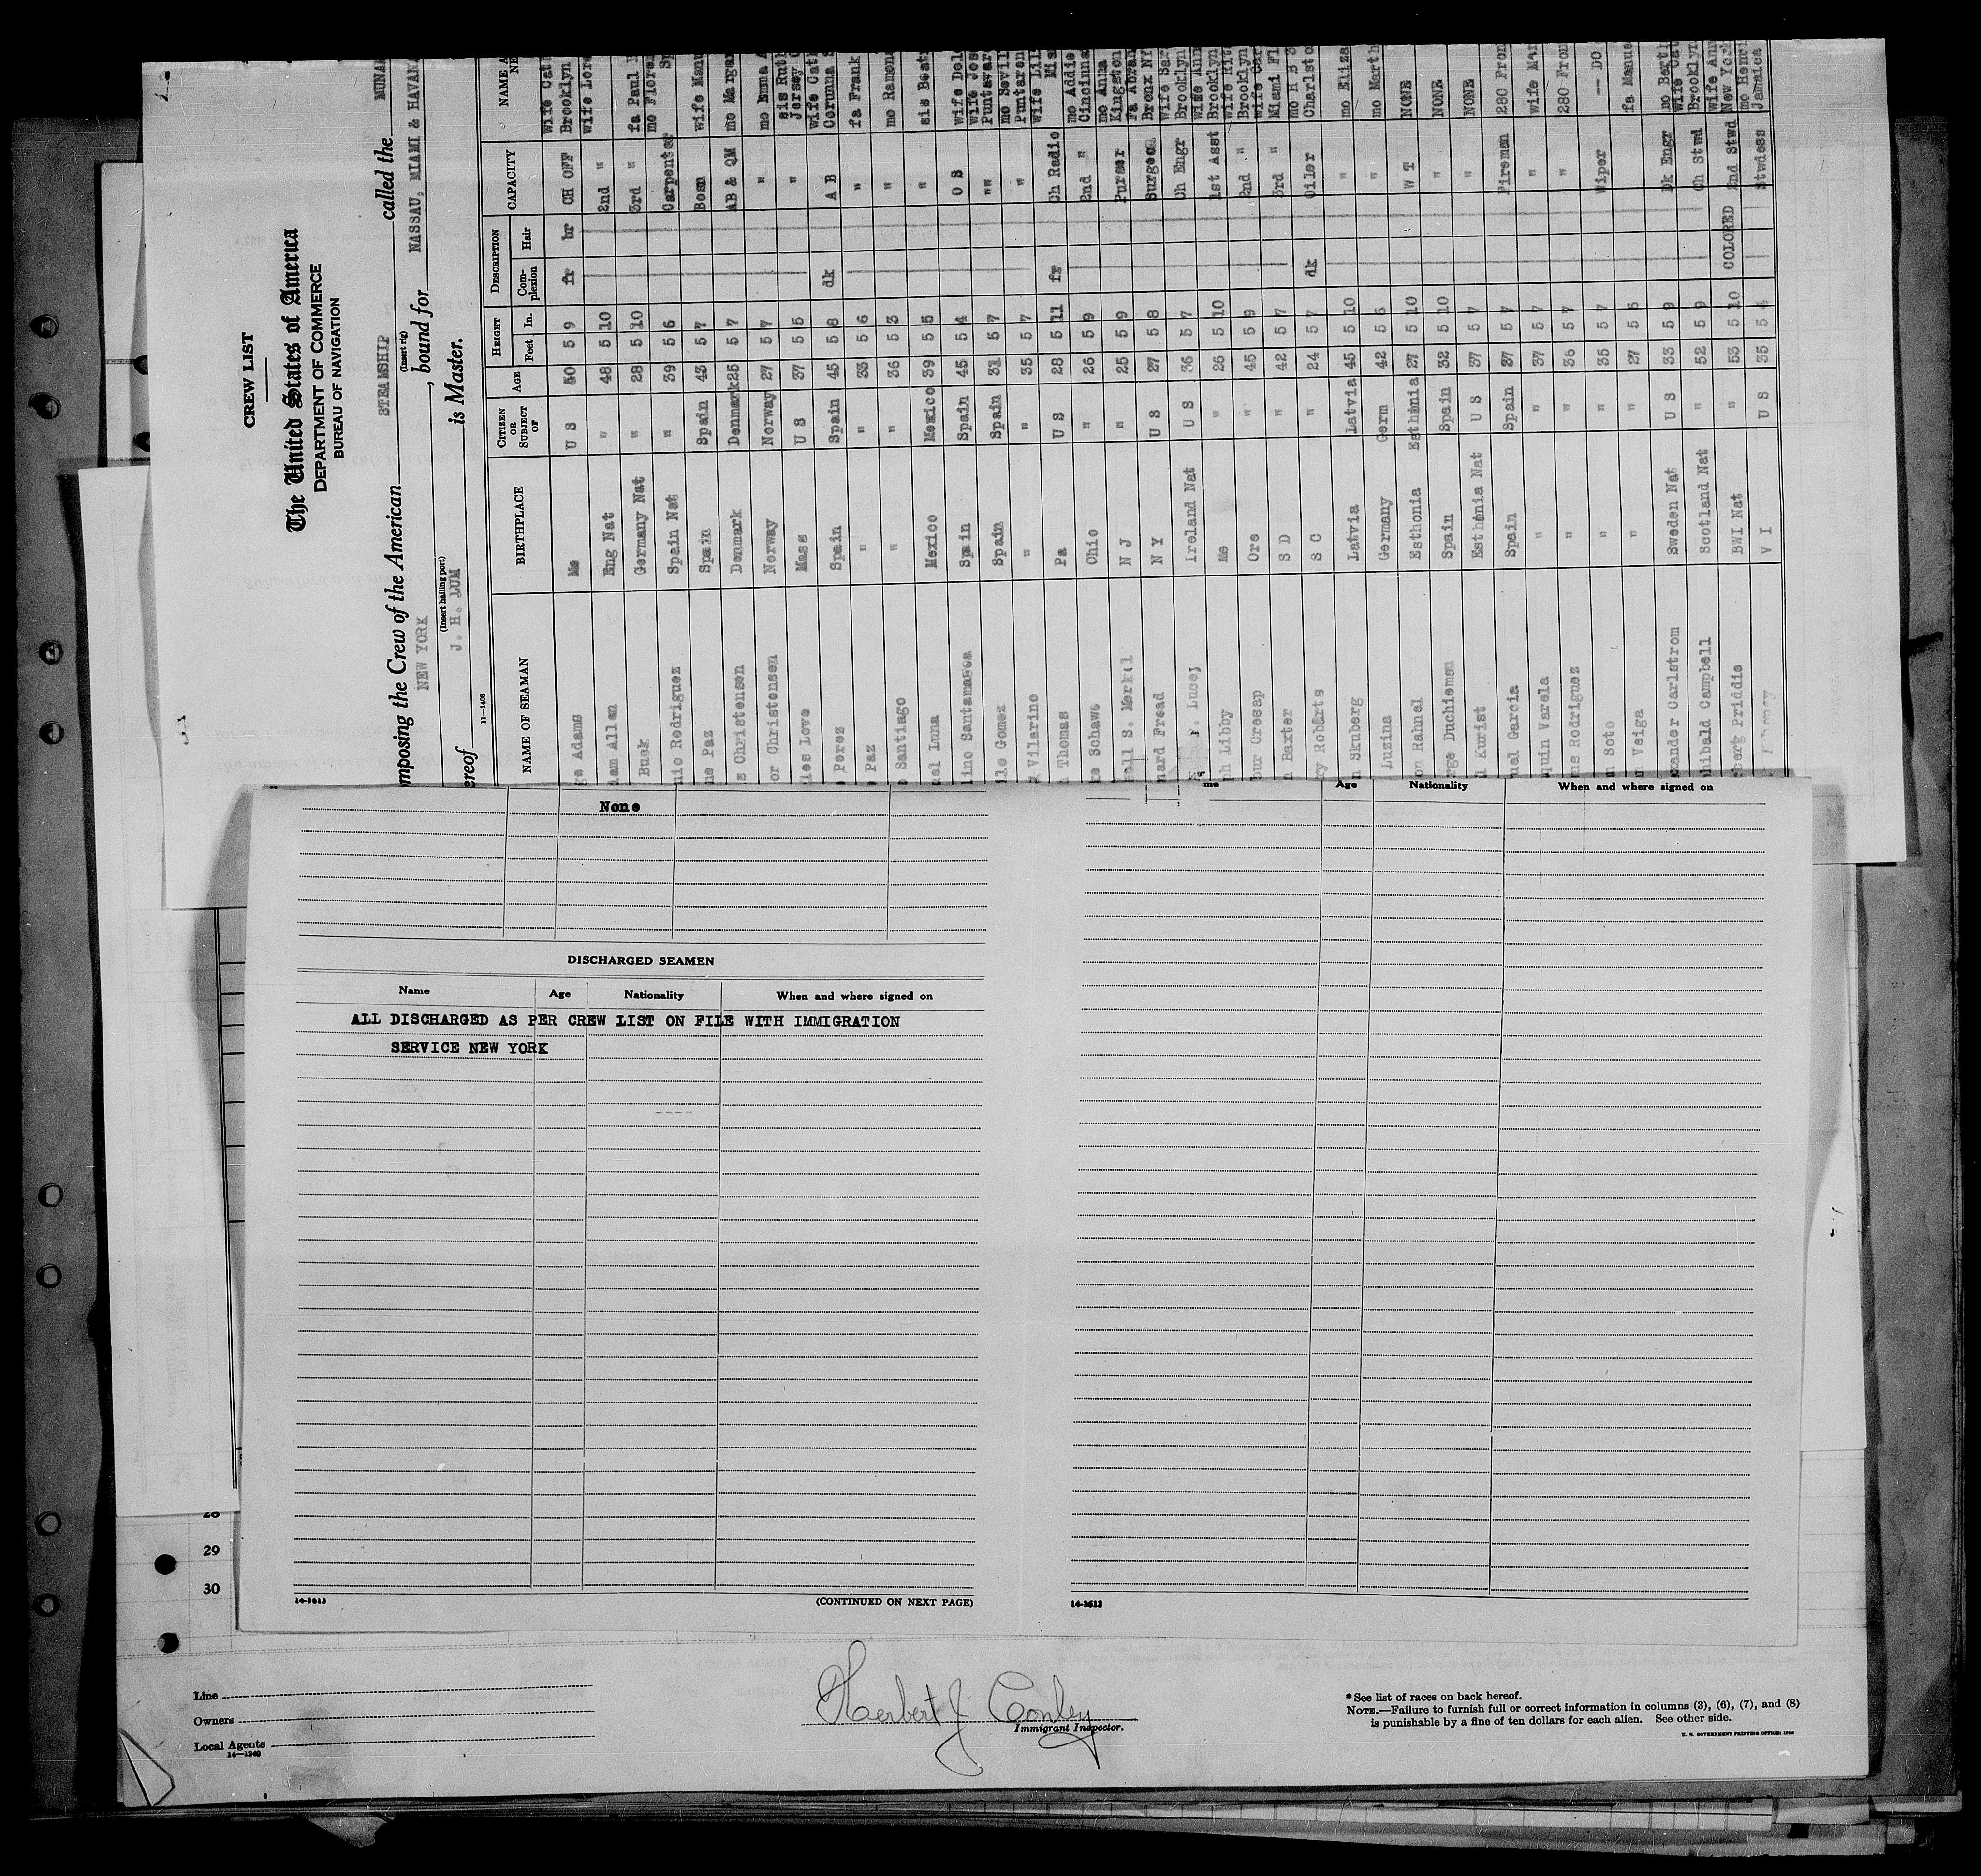 CREW LIST
The United States of America
DEPARTMENT OF COMMERCE
BUREAU OF NAVIGATION
mposing the Crew of the American STEAMSHIP called the MUNAR
(Insert rig)
NEW YORK , bound for NASSAU, MIAMI & HAVAN
(Insert hailing port)
ereof J. H. LUM is Master.
11—1408
NAME OF SEAMAN BIRTHPLACE CITIZEN OR SUBJECT OF AGE HEIGHT Feet In. DESCRIPTION Com-plexion Hair CAPACITY NAME A
ge Adams Me U S 40 5 9 fr br CH OFF wife Cat Brooklyn
iam Allen Eng Nat " 48 5 10 2nd " wife Lore
Buck Germany Nat " 28 5 10 3rd " fa Paul
nio Rodriguez Spain Nat " 39 5 6 Carpenter mo Floren Sp
ne Paz Spain Spain 43 5 7 Bosn wife Manu
s Christensen Denmark Denmark 25 5 7 AB & QM mo Margar
or Christensen Norway Norway 27 5 7 " mo Emma A
les Love Mass U S 37 5 5 " sis Rut Jersey
Perez Spain Spain 45 5 8 dk A B wife Cat Corunna S
Paz " " 33 5 6 " fa Frank
o Santiago " " 36 5 3 " mo Ramon
uel Luna Mexico Mexico 39 5 5 " sis Beat
lino Santamaria Spain Spain 45 5 4 O S wife Del
ilo Gomez Spain Spain 31 5 7 "" wife Jos Puntevar
Vilarino " " 35 5 7 " mo Sevill Puntaren
n Thomas Pa U S 28 5 11 fr Ch Radio wife Lil Mia
ke Schawe Ohio " 26 5 9 2nd " mo Addie Cincinna
ell S. Merkil N J " 25 5 9 Purser mo Anna Kingston
nard Fread N Y U S 27 5 8 Surgeon Fa Abra Bronx NY
Lucey Ireland Nat U S 36 5 7 Ch Engr wife Sar Brooklyn
ph Libby Me " 26 5 10 1st Asst wife Ann Brooklyn
bur Cressap Ore " 45 5 9 2nd " wife Rit Brooklyn
n Baxter S D " 42 5 7 3rd " wife Car Miami Fl
ry Robarts S C " 24 5 7 dk Oiler mo H B 3 Charlsto
n Skuberg Latvia Latvia 45 5 10 " mo Eliza
Luzina Germany Germ 42 5 6 " mo Marth
on Rahnel Esthonia Esthonia 27 5 10 W T NONE
rge Duchiemsu Spain Spain 32 5 10 " NONE
l Kurist Esthonia Nat U S 37 5 7 " NONE
uel Garcia Spain Spain 37 5 7 Fireman 280 Fron
quin Varela " " 37 5 7 " wife Mar
us Rodriguez " " 36 5 7 " 280 Fron
n Soto " " 35 5 7 Wiper -- DO
n Veiga " " 27 5 6 fa Manue
xander Carlstrom Sweden Nat U S 33 5 9 Dk Engr mo Bert
hibald Campbell Scotland Nat " 52 5 9 Ch Stwd wife Cat Brooklyn
bert Priddie BWI Nat " 53 5 10 COLORED 2nd Stwd wife Ann New York
V I U S 35 5 4 Stwdess mo Henri Jamaica
None
DISCHARGED SEAMEN
Name Age Nationality When and where signed on
ALL DISCHARGED AS PER CREW LIST ON FILE WITH IMMIGRATION
SERVICE NEW YORK
14-3613 (CONTINUED ON NEXT PAGE)
me Age Nationality When and where signed on
14-3613
28
29
30
Line
Owners
Local Agents
14—1240
Herbert J Conley
Immigrant Inspector.
* See list of races on back hereof.
NOTE.—Failure to furnish full or correct information in columns (3), (6), (7), and (8)
is punishable by a fine of ten dollars for each alien. See other side.
U. S. GOVERNMENT PRINTING OFFICE: 1930